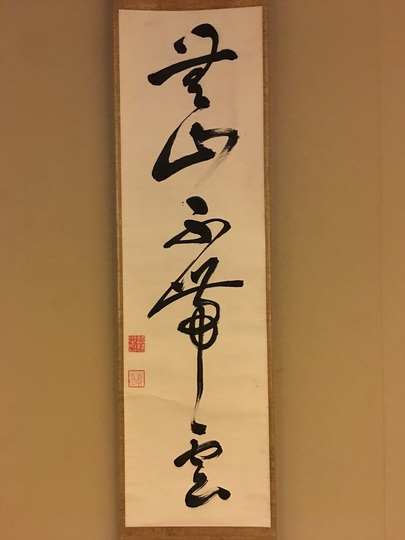 無山不帯雲